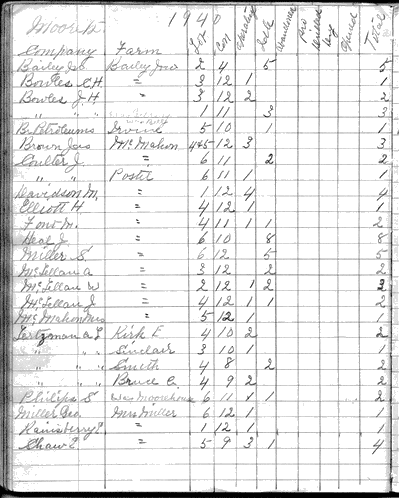 Moore Tp. 1940
Company Farm Lot Con Operating Idle Abandoned Dry Total
Bailey Geo Bailey Jno 2 4 5 5
Bowles C.H. " 3 12 1 1
Bowles J.H. " 3 12 2 2
" " 1 11 3 3
B. Petroleums Irvine 5 10 1 1
Brown Jas McMahon 4&5 12 3 3
Coulter J. " 6 11 2 2
" " Postil 6 11 1 1
Davidson M. " 1 12 4 4
Elliott H. " 4 12 1 1
Font M. " 4 11 1 1 2
Heal J. " 6 10 8 8
Miller S. " 6 12 5 5
McLellan A " 3 12 2 2
McLellan W " 2 12 1 2 3
McLellan J " 4 12 1 1 2
McMahon Mrs " 5 12 1 1
Lertzman A L Kirk E 4 10 2 2
" " Sinclair 3 10 1 1
" " Smith 4 8 2 2
" " Bruce C. 4 9 2 2
Philips S Moorehouse 6 11 1 1 2
Miller Geo. Mrs Miller 6 12 1 1
" 1 12 1 1
Shaw E " 5 9 3 1 4